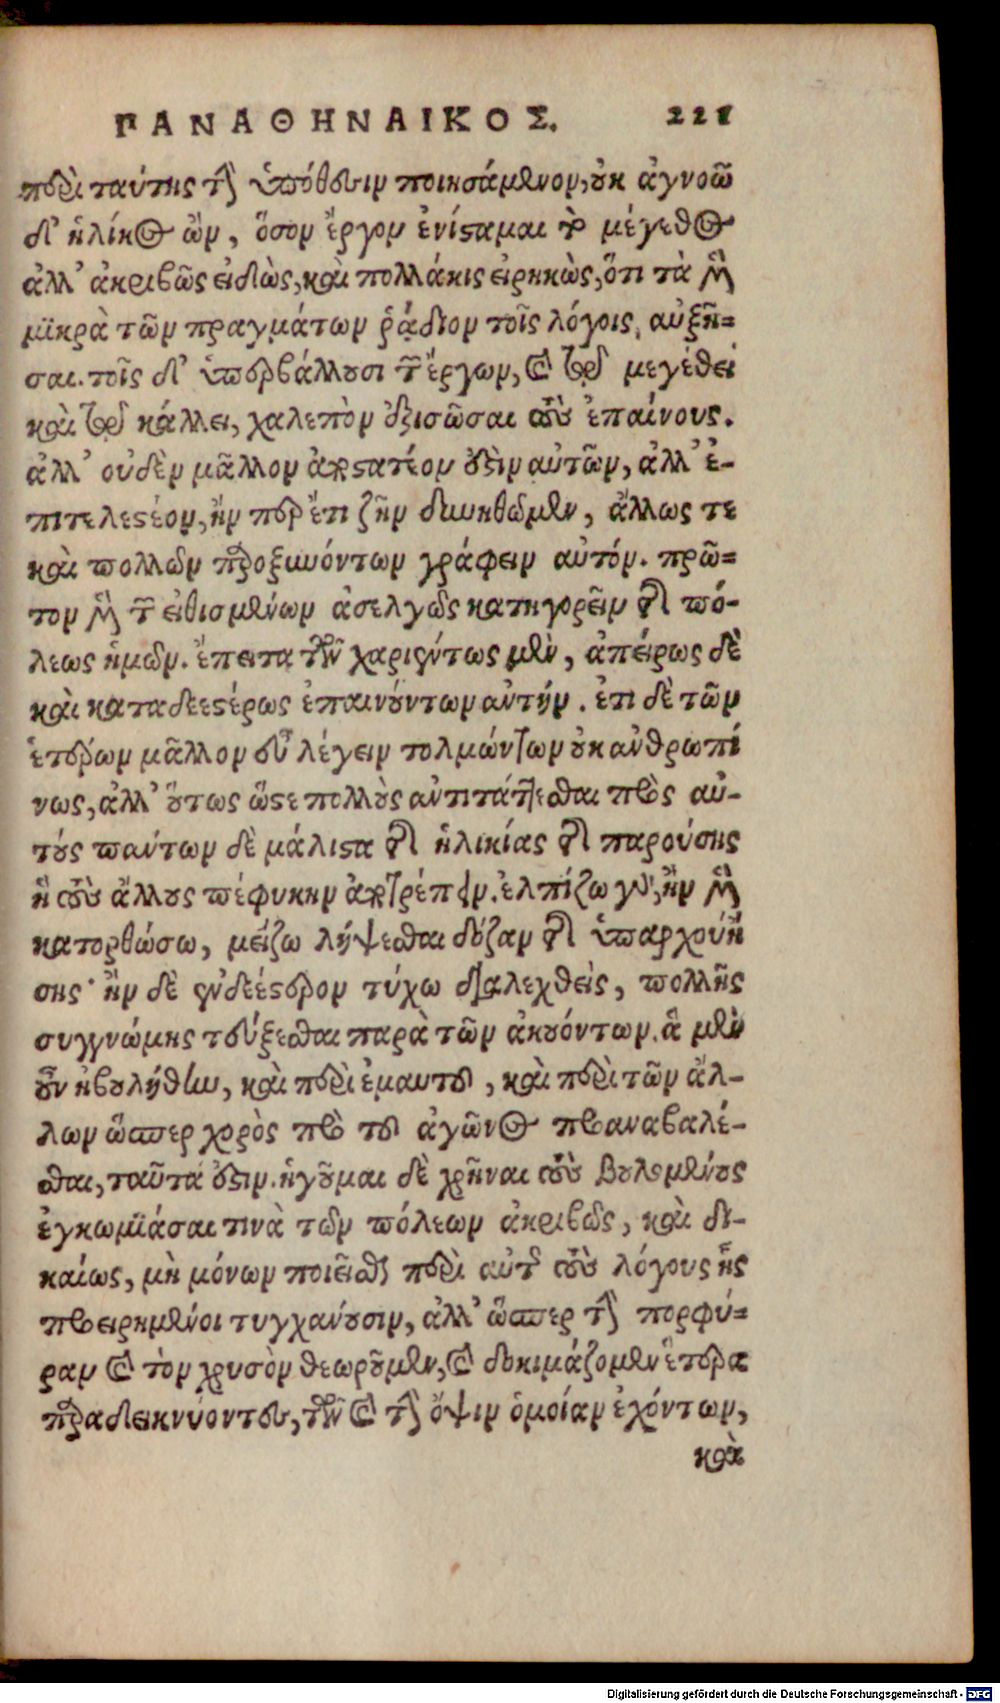 ΠΑΝΑΘΗΝΑΙΚΟΣ. 221
περὶ ταύτης τὴν ὑπόθεσιν ποιησάμενον, οὐκ ἀγνοῶ
δ' ἡλίκος ὢν, ὅσον ἔργον ἐνίσταμαι τὸ μέγεθος
ἀλλ' ἀκριβῶς εἰδὼς, καὶ πολλάκις εἰρηκὼς, ὅτι τὰ μὲν
μικρὰ τῶν πραγμάτων ῥᾴδιον τοῖς λόγοις, αὐξῆ-
σαι. τοῖς δ' ὑπερβάλλουσι τῶν ἔργων, καὶ τῷ μεγέθει
καὶ τῷ κάλλει, χαλεπὸν ἐξισῶσαι τοὺς ἐπαίνους.
ἀλλ' οὐδὲν μᾶλλον ἀποστατέον ἐστὶν αὐτῶν, ἀλλ' ἐ-
πιτελεστέον, ἤν περ ἔτι ζῆν δυνηθῶμεν, ἄλλως τε
καὶ πολλῶν παροξυνόντων γράφειν αὐτόν. πρῶ-
τον μὲν τῶν εἰθισμένων ἀσελγῶς κατηγορεῖν τῆς πό-
λεως ἡμῶν. ἔπειτα τῶν χαριέντως μὲν, ἀπείρως δὲ
καὶ καταδεεστέρως ἐπαινούντων αὐτήν. ἔτι δὲ τῶν
ἑτέρων μᾶλλον εὖ λέγειν τολμώντων οὐκ ἀνθρωπί
νως, ἀλλ' οὕτως ὥστε πολλοὺς ἀντιτάττεσθαι πρὸς αὐ-
τούς πάντων δὲ μάλιστα τῆς ἡλικίας τῆς παρούσης
ἣ τοὺς ἄλλους πέφυκην ἀποτρέπειν. ἐλπίζω γὰρ, ἢν μὲν
κατορθώσω, μείζω λήψεσθαι δόξαν τῆς ὑπαρχού
σης· ἢν δὲ ἐνδεέστερον τύχω διαλεχθεὶς, πολλῆς
συγγνώμης τεύξεσθαι παρὰ τῶν ἀκουόντων. ἃ μὲν
οὖν ἠβουλήθην, καὶ περὶ ἐμαυτοῦ, καὶ περὶ τῶν ἄλ-
λων ὥσπερ χορὸς πρὸ τοῦ ἀγῶνος προαναβαλέ-
σθαι, ταῦτά ἐστιν. ἡγοῦμαι δὲ χρῆναι τοὺς βουλομένους
ἐγκωμιάσαι τινὰ τῶν πόλεων ἀκριβῶς, καὶ δι-
καίως, μὴ μόνων ποιεῖσθαι περὶ αὐτῆς τοὺς λόγους ἧς
προειρημένοι τυγχάνουσιν, ἀλλ' ὥσπερ τὴν πορφύ-
ραν καὶ τὸν χρυσὸν θεωροῦμεν, καὶ δοκιμάζομεν ἕτερα
παραδεικνύοντες, τῶν καὶ τὴν ὄψιν ὁμοίαν ἐχόντων,
καὶ
Digitalisierung gefördert durch die Deutsche Forschungsgemeinschaft - DFG